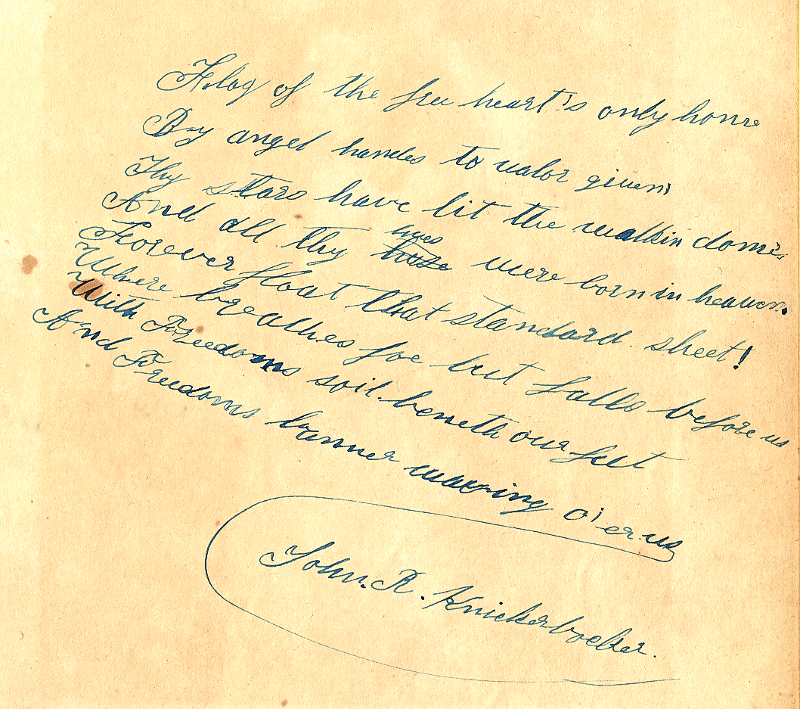 Flag of the free heart's only home
By angel hands to valor given;
Thy stars have lit the walkin dome;
And all thy hues were born in heaven.
Forever float that standard sheet!
Where breathes foe but falls before us
With Freedoms soil beneth our feet
And Freedoms banner waving o'er us
John. R. Knickerbocker.